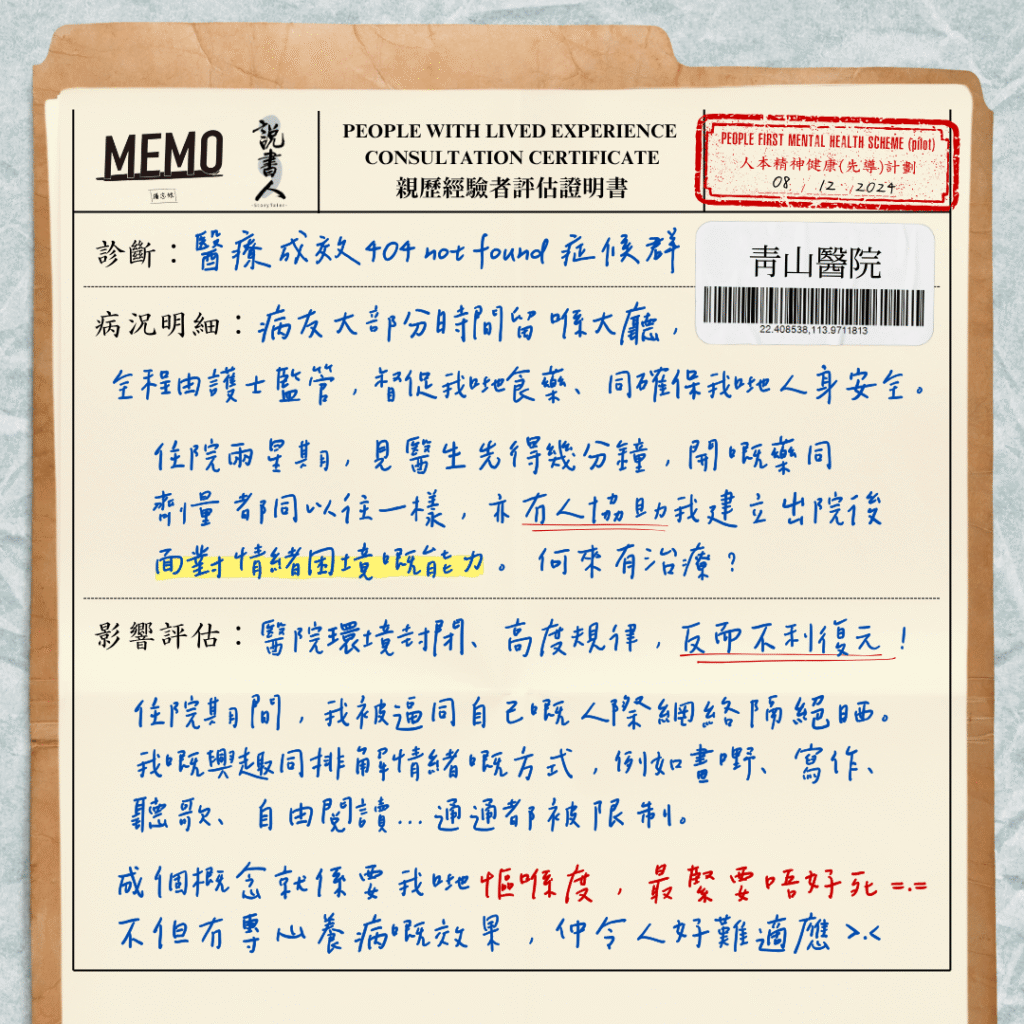 MEMO
說書人
-StoryTeller-
PEOPLE WITH LIVED EXPERIENCE
CONSULTATION CERTIFICATE
親歷經驗者評估證明書
PEOPLE FIRST MENTAL HEALTH SCHEME (pilot)
人本精神健康(先導)計劃
08 / 12 / 2024
診斷：醫療成效404 not found 症候群
青山醫院
22.408538,113.9711813
病況明細：病友大部分時間留喺大廳，
全程由護士監管，督促我哋食藥、同確保我哋人身安全。
住院兩星期，見醫生先得幾分鐘，開嘅藥同
劑量都同以往一樣，亦冇人協助我建立出院後
面對情緒困境嘅能力。何來有治療？
影響評估：醫院環境封閉、高度規律，反而不利復元！
住院期間，我被逼同自己嘅人際網絡隔絕晒。
我嘅興趣同排解情緒嘅方式，例如畫嘢、寫作、
聽歌、自由閱讀...通通都被限制。
成個概念就係要我哋慪喺度，最緊要唔好死 =.=
不但冇專心養病嘅效果，仲令人好難適應 >.<